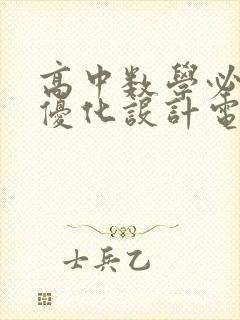 高中数學必
優化設計電
士兵乙